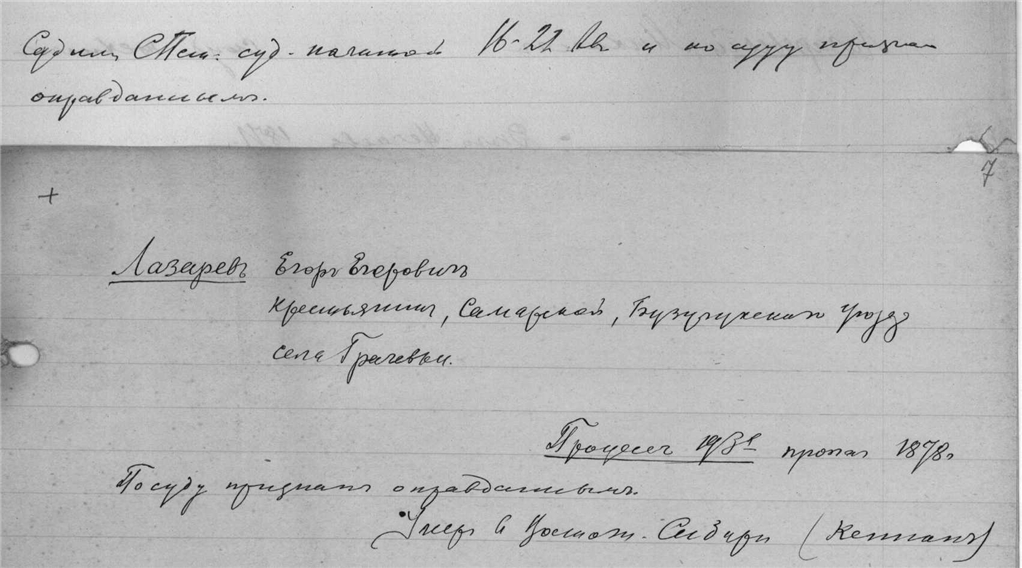 Судим СПен. суд. палатой 16-22 Авг и по суду признан
оправданнымъ.
7
+
Лазаревъ Егоръ Егоровичъ
крестьянинъ, Самарской, Бузулукскаго уѣзда
села Грачевки.
Процессъ 193хъ пропаг 1878г
По суду признанъ оправданнымъ.
Умеръ в Восточ. Сибири (Кеннанъ)